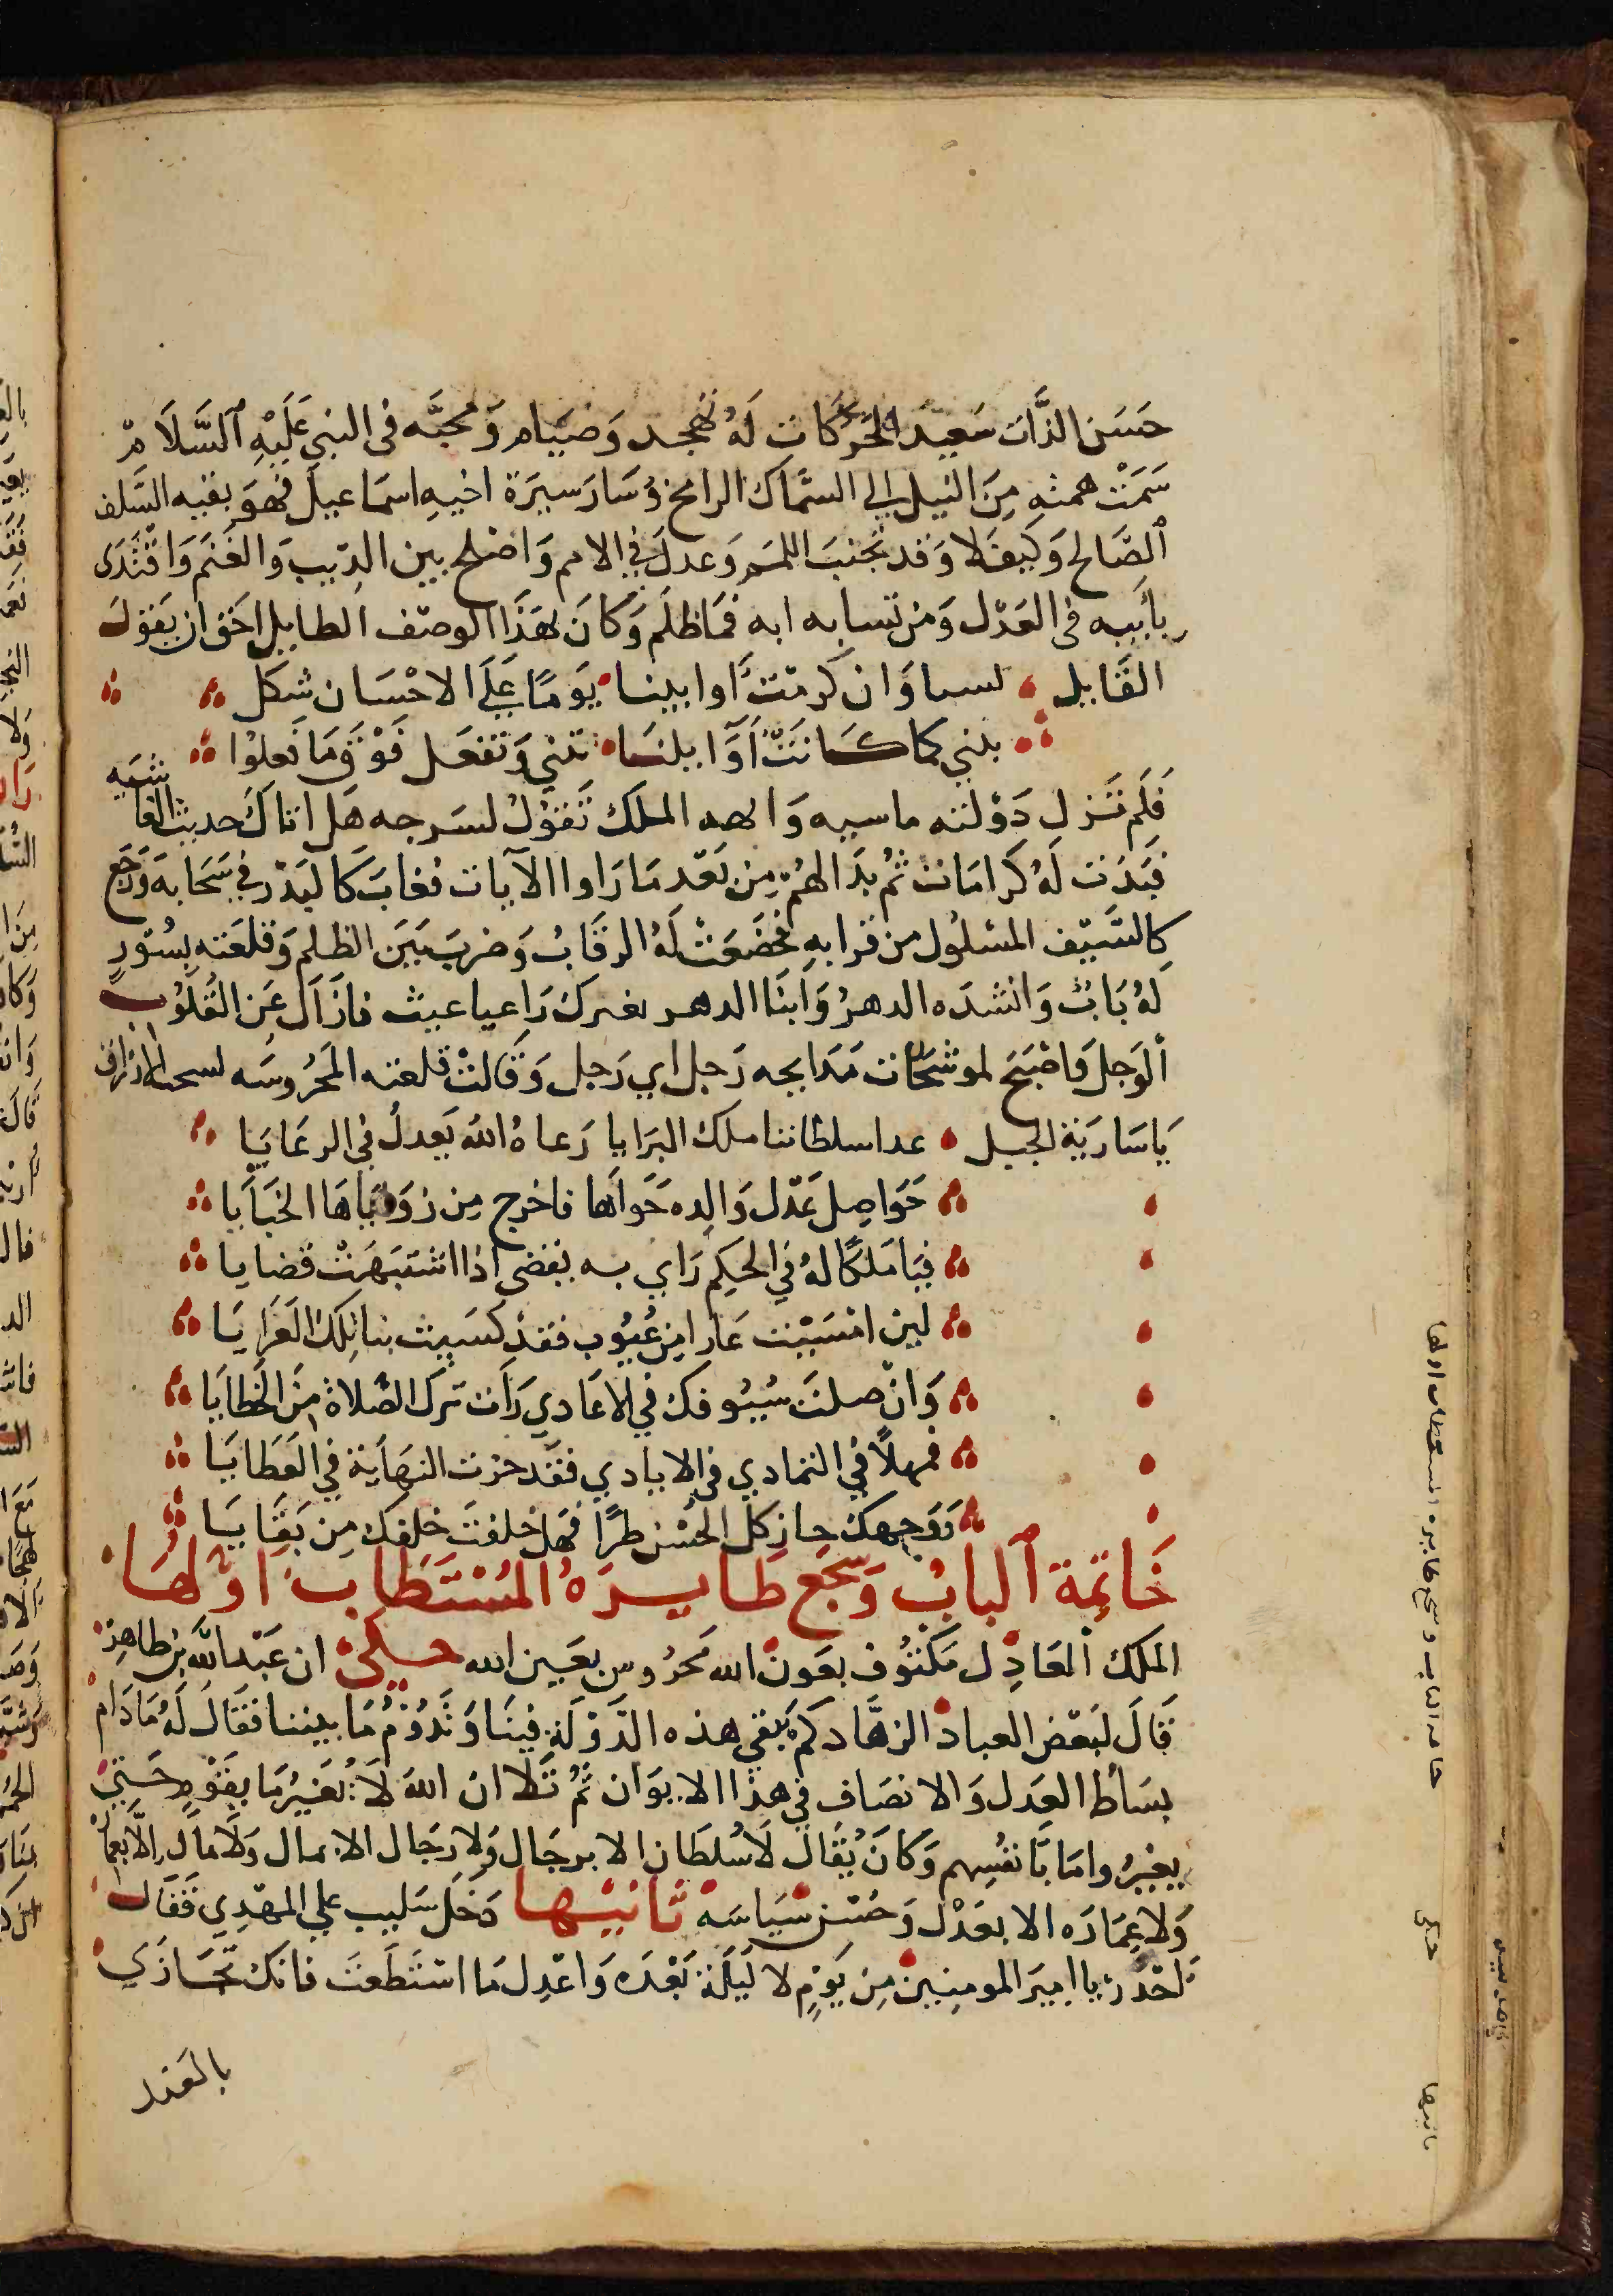 حَسَن الذَّات سَعِيد الحَرَكات لَهُ تهجد وَصِيَام وَمحبَّه فى النبي عَلَيْهِ ٱلسَّلَام
سَمَتْ همته مِنَ النيل الى السِّماك الرامح وُسَار سيرَة اخيهِ اسمَاعيل فهوَ بقيه السَّلف
ٱلصَّالح وَكيفَ لا وَقد تجنبَ اللمَم وَعدلَ في الامم وَاصْلح بين الذيب وَالغَنَم وَاقْتَدَى
بابيه فى العَدْل وَمن تشابه ابه فمَا ظلَم وَكانَ بهَذَا الوصْف الطايل احَق ان يَقولَ
القَايل لسنا وَان كرمَتْ اوايلنا يَومًا عَلَى الاحْسَان نتكل
نبني كما كَانَتْ أَوَايلنَا تبني وَتفعَل فَوْقَ مَا فَعلوُا
فَلم تَزل دَوْلته ماسيه وَابهه الملك تَقوُلُ لسَرجه هَل اتاكَ حديث الغاشيَه
فبَدَت لَهُ كَرامَات ثُم بدَا لهُم مِن بَعْد مَا رَاوا الآيات فغابَ كَالبَدْر في سَحَابه وَرَجَع
كالسَّيْف المسْلُول من قرابهِ فخضَعَتْ لَهُ الرقَابُ وَضربَ بَيْنَ الظلم وَقلعَته بسُورٍ
لَهُ بَابٌ وَانشدَه الدهرُ وَابنَا الدهر بغيرك رَاعيا عبث فازَالَ عَن القُلوُب
ٱلوَجلَ وَاصْبَحَ لموشحَات مَدَايحه زَجل اي زَجل وَقَالتْ قلعته المَحُروسَه
يَا سَارَيَة الجبل غدا سلطاننا ملك البرَايا رَعاهُ اللهُ يَعدلُ في الرعَايَا
حَوَاصِل عَدْل وَالِده حَوَاهَا فاخرج مِن زوَايَاهَا الخبَايَا
فيَا مَلكًا لهُ في الحكم رَاي به يقضى اذا اشتَبهَتْ قضايا
لين امْسَيْت عَاريا مِن عُيُوب فقدْ كسَيت بنا تِلكَ العَرَايَا
وَانْ صلتَ سُيُوفك في الاعَادي رَات ترَك الصَّلاة مِنَ الخَطايَا
فمهلاً في التمادي فى الايادي فقَدْ حزت النهَايَة في العَطَايَا
وَوَجهك حاز كل الحُسْن طرًا فهَل خلفتَ خلفكَ مِن بَقَايَا
خَاتِمة ٱلبابْ وَسَجَع طَايِرهُ المُسْتَطَاب اوّلهَا
الملك ٱلعَادِل مَكنُوف بعَون الله محرُوس بعَين الله حكى ان عَبْد اللَّه بن طاهِر
قَالَ لبَعْض العباد الزهَّاد كم تَبقي هذه الدّوْلَة فينَا وَتَدوُمُ مَا بيننا فقَالَ لَهُ مَا دَام
بسَاط العَدل وَالانصَاف في هذا الايوَان ثُمَّ تَلا ان اللهَ لَا يُغَيرُ مَا بقَوْمٍ حَتىَّ
يغيرُوا مَا بأنفُسِهم وَكانَ يُقَالَ لَا سُلطَان الا برجَال وَلا رجَال الا بمال وَلَا مَال اِلّا بعمارَه
وَلا عِمَارَه الا بعَدْل وَحُسْن سيَاسَه ثَانيْهَا دَخَل سَليب علي المهْدِي فَقَال
احْذر يا اميرَ المومنين مِن يَوْمٍ لا لَيلَة بَعْدَه وَاعْدِل مَا اسْتَطَعتَ فانك تجَازَي
بالعَدل
خاتمه الباب وسجع طايره المستطاب اولها
حكى
ثانيها